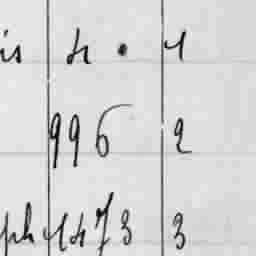 is 4 . 1
996 2
ph 1473 3